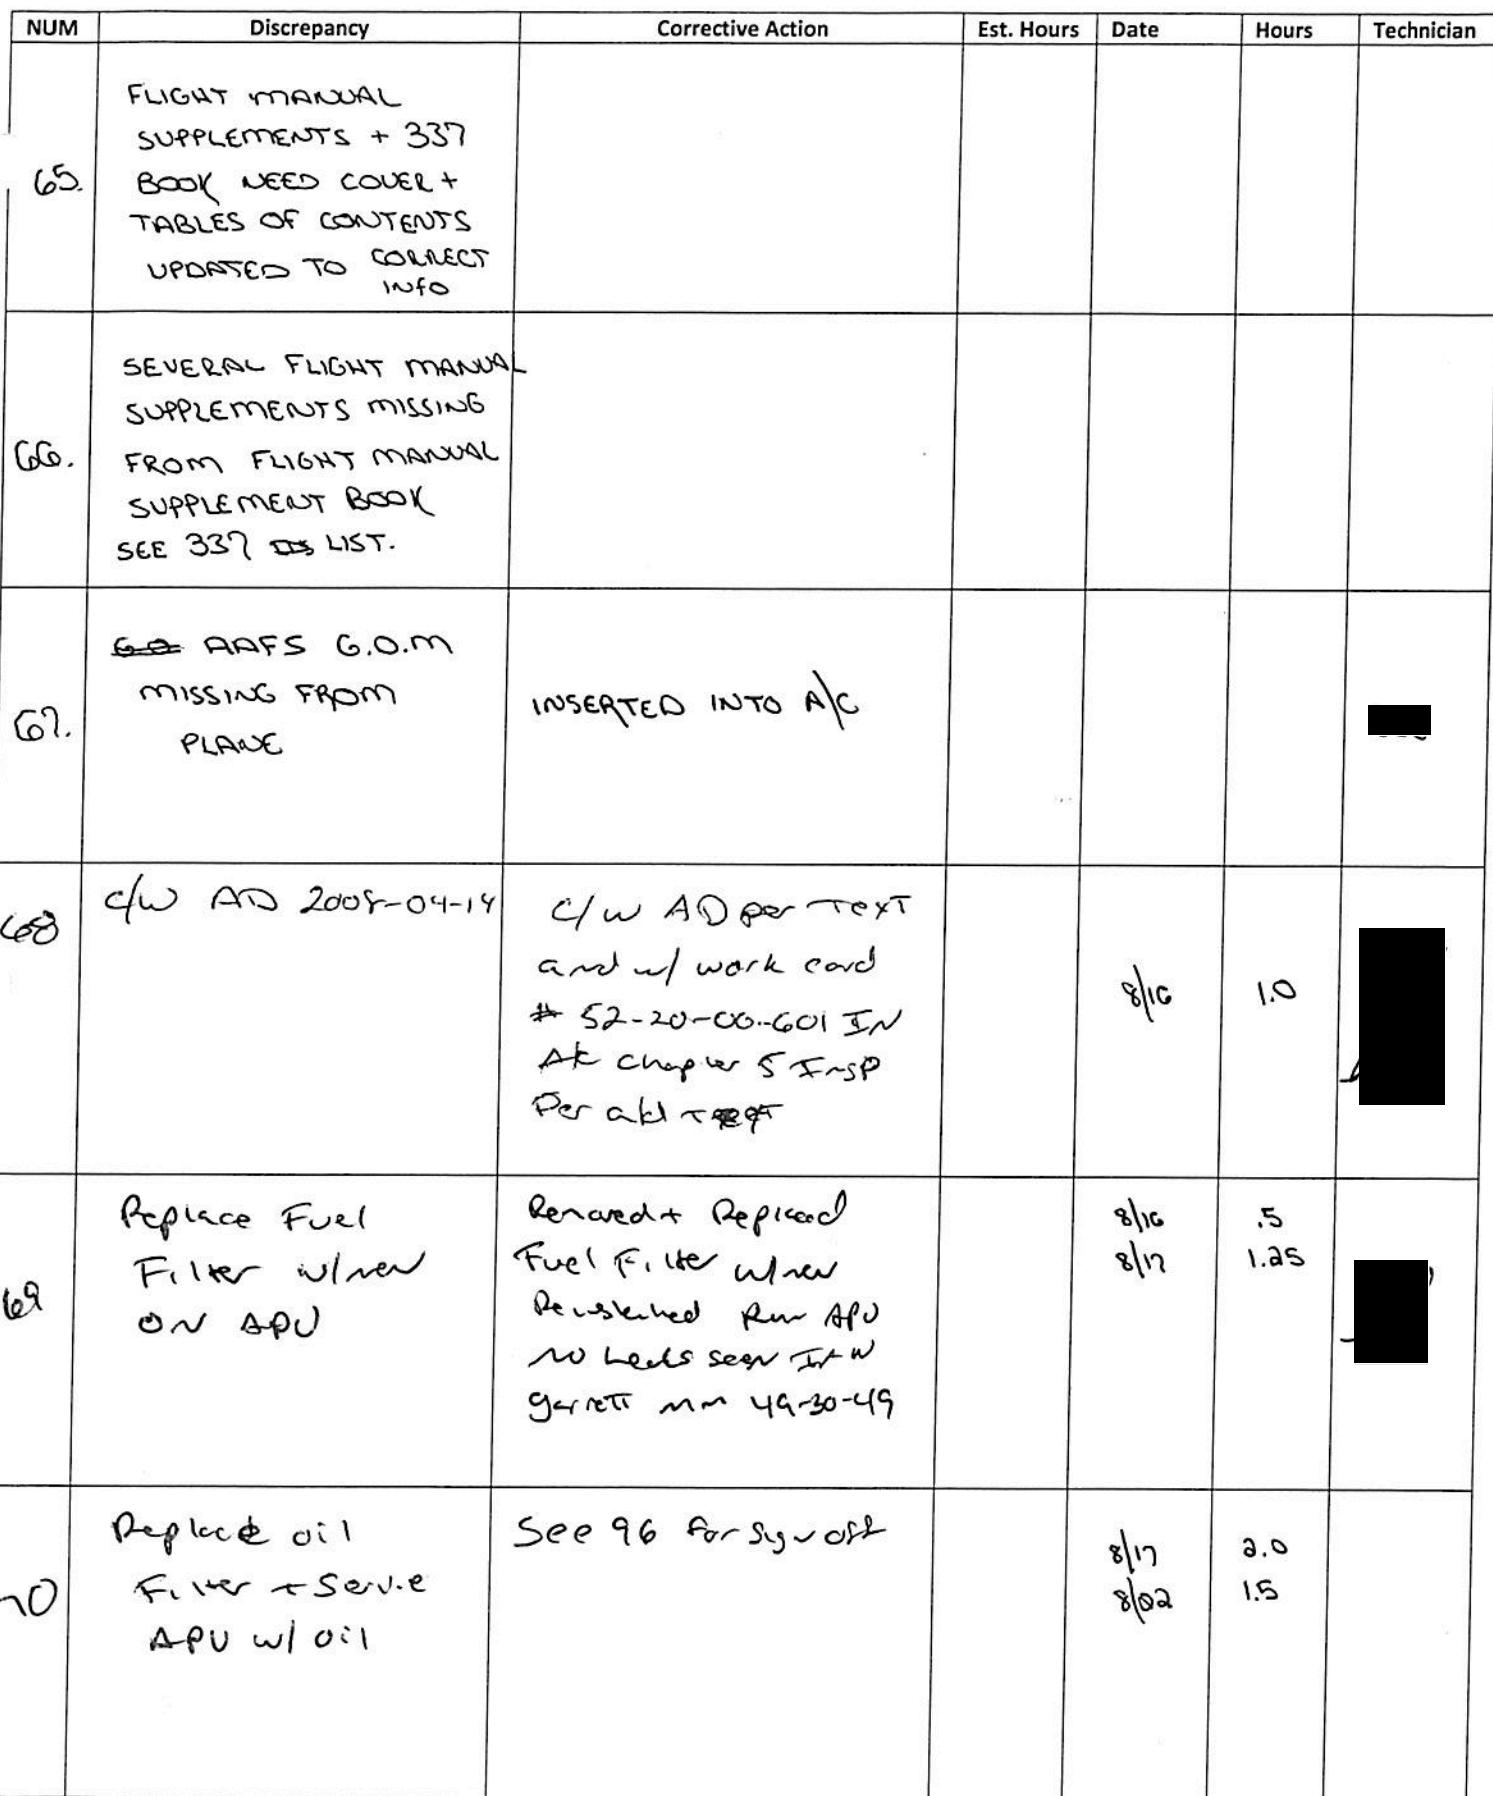 NUM Discrepancy Corrective Action Est. Hours Date Hours Technician
65.
FLIGHT MANUAL
SUPPLEMENTS + 337
BOOK NEED COVER +
TABLES OF CONTENTS
UPDATED TO CORRECT
INFO
66.
SEVERAL FLIGHT MANUAL
SUPPLEMENTS MISSING
FROM FLIGHT MANUAL
SUPPLEMENT BOOK
SEE 337 LIST.
67.
AAFS G.O.M
MISSING FROM
PLANE
INSERTED INTO A/C
68
C/W AD 2008-04-14
C/W AD per Text
and w/ work card
# 52-20-00-601 IN
chapter 5 Insp
Per
8/16 1.0
69
Replace Fuel
Filter w/new
ON APU
Removed + Replaced
Fuel Filter w/new
Run APU
NO Leaks seen IAW
Garrett MM 49-30-49
8/16 .5
8/17 1.25
70
Replace oil
Filter + Service
APU w/ oil
See 96 for sign off
8/17 2.0
8/22 1.5